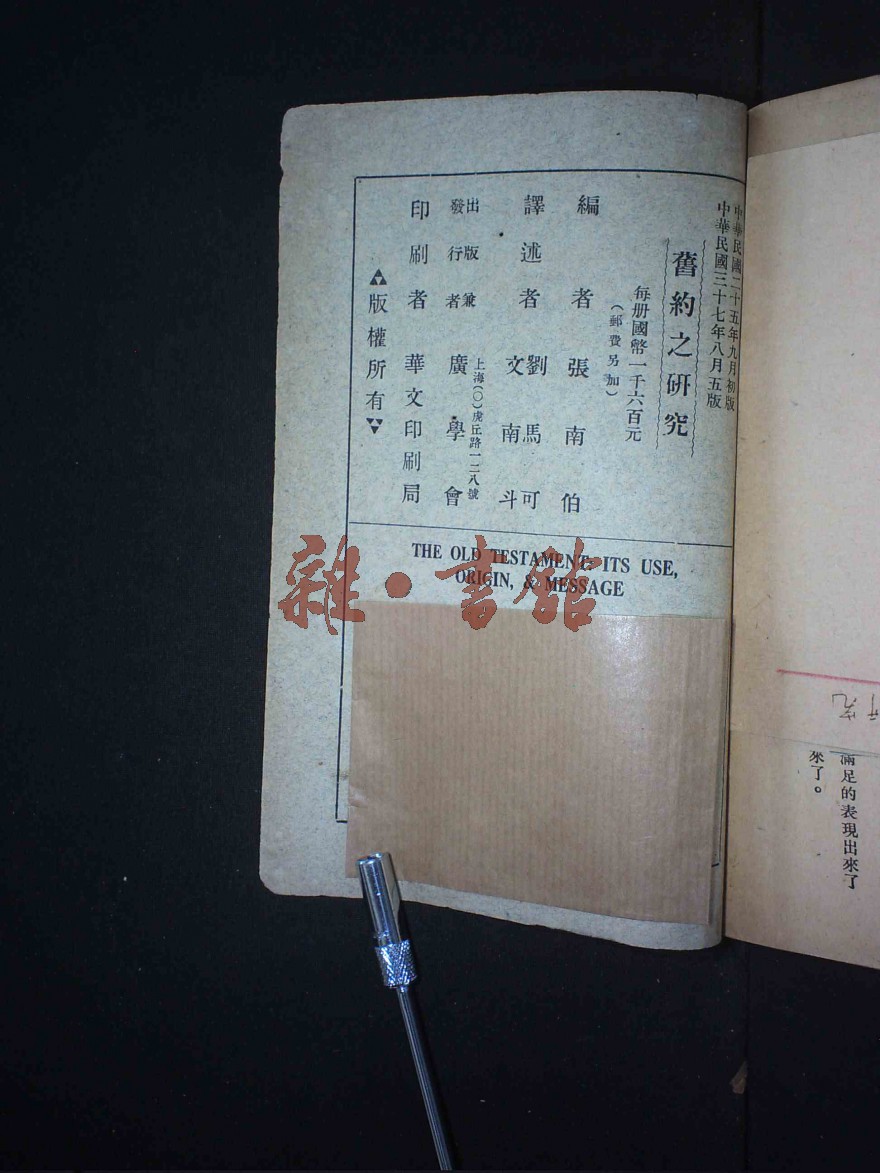 中華民國二十五年九月初版
中華民國三十七年八月五版
舊約之研究
每册國幣一千六百元
（郵費另加）
編者張南伯
譯述者劉馬可
文南斗
出版兼
發行者
上海（〇）虎丘路一二八號
廣學會
印刷者華文印刷局
版權所有
THE OLD TESTAMENT: ITS USE,
ORIGIN, & MESSAGE
雜·書館
滿足的表現出來了
來了。